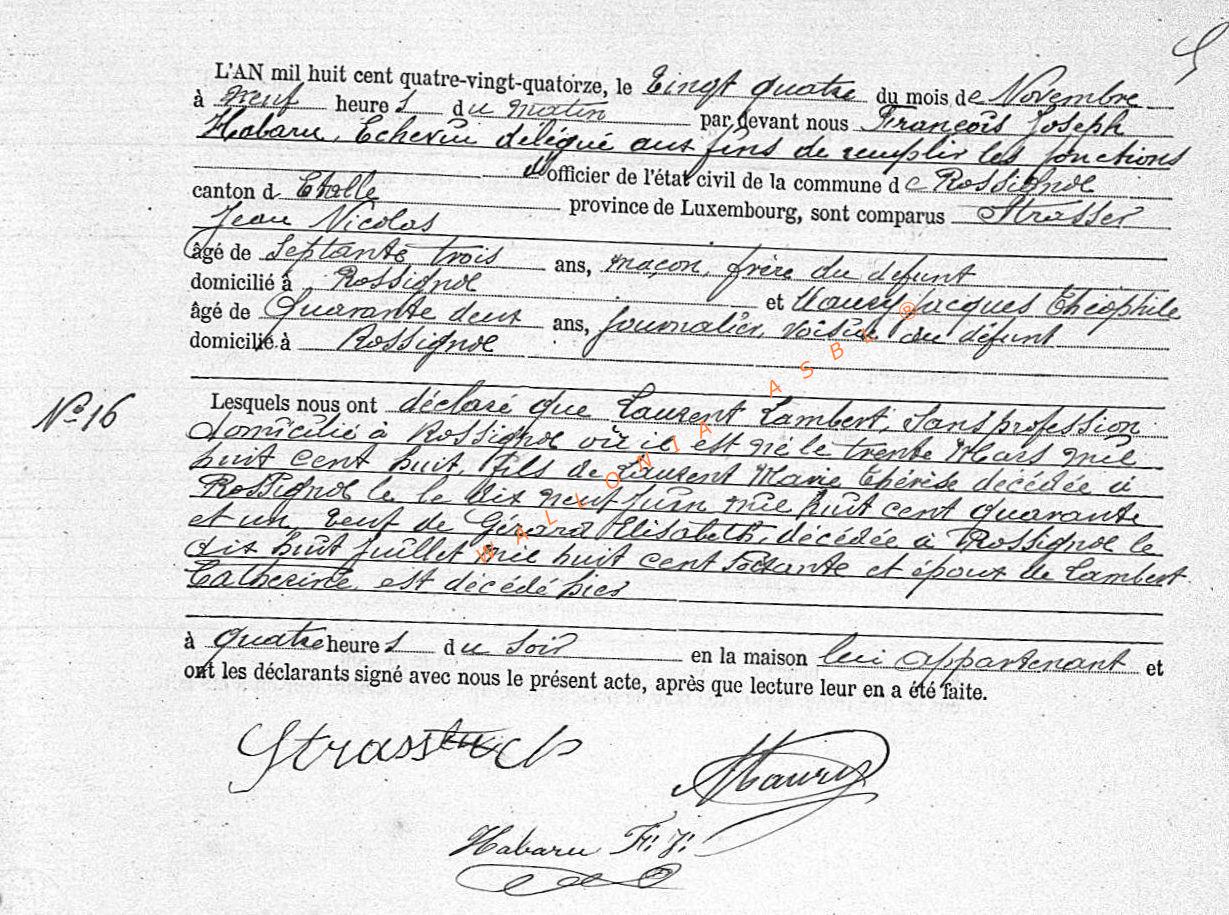 L'AN mil huit cent quatre-vingt-quatorze, le Vingt quatre du mois de Novembre
à neuf heures du matin par devant nous François Joseph
Habaru, Echevin délégué aux fins de remplir les fonctions
d'officier de l'état civil de la commune de Rossignol
canton d Etalle province de Luxembourg, sont comparus Strasser
Jean Nicolas
âgé de Septante trois ans, maçon, frère du défunt
domicilié à Rossignol et Maury Jacques Théophile
âgé de Quarante deux ans, journalier, voisin du défunt
domicilié à Rossignol
Lesquels nous ont déclaré que Laurent Lambert, Sans profession
domicilié à Rossignol où il est né le trente Mars mil
huit cent huit, fils de Laurent Marie Thérèse décédée à
Rossignol le le dix neuf Juin mil huit cent quarante
et un, veuf de Gérard Elisabeth, décédée à Rossignol le
dix huit Juillet mil huit cent soixante et époux de Lambert
Catherine, est décédé hier
à quatre heures du soir en la maison lui appartenant et
ont les déclarants signé avec nous le présent acte, après que lecture leur en a été faite.
Nº 16
Maury
Habaru F. J.
WALLONIA ASBL @